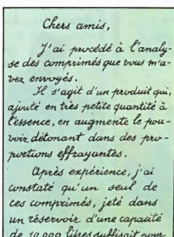 Chers amis,
J'ai procédé à l'analy-
se des comprimés que vous m'a-
vez envoyés.
Il s'agit d'un produit qui,
ajouté en très petite quantité à
l'essence, en augmente le pou-
voir détonant dans des pro-
portions effrayantes.
Après expérience, j'ai
constaté qu'un seul de
ces comprimés, jeté dans
un réservoir d'une capacité
de 10.000 litres suffisait pour